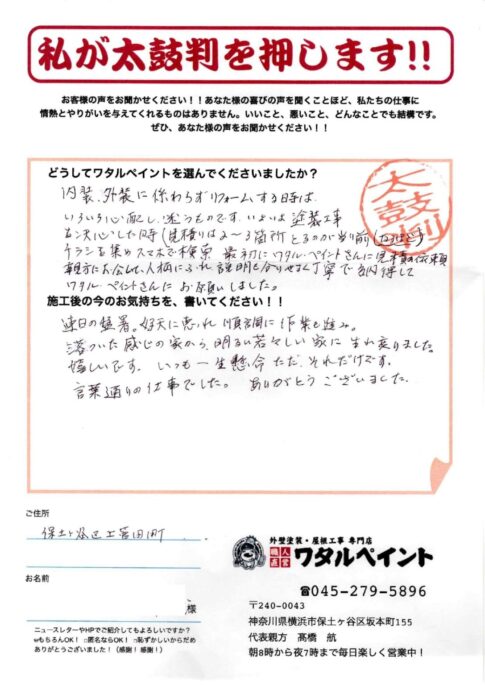 私が太鼓判を押します!!
お客様の声をお聞かせください!!あなた様の喜びの声を聞くことほど、私たちの仕事に
情熱とやりがいを与えてくれるものはありません。いいこと、悪いこと、どんなことでも結構です。
ぜひ、あなた様の声をお聞かせください!!
どうしてワタルペイントを選んでくださいましたか?
太鼓判
内装、外装に係わらずリフォームする時は
いろいろ心配し、迷うものです。いよいよ塗装工事
を決心した時(見積りは2〜3箇所とるのが当り前(なるほど)
チラシを集めスマホで検索 最初にワタル・ペイントさんに見積り依頼
親方にお会して、人柄にふれ説明も合わせて丁寧で納得して
ワタル・ペイントさんにお願いしました。
施工後の今のお気持ちを、書いてください!!
連日の猛暑。好天に恵れ順調に作業も進み。
落ついた感じの家から、明るい若々しい家に生れ変りました。
嬉しいです。いつも一生懸命ただ、それだけです。
言葉通りの仕事でした。ありがとうございました。
ご住所
保土ヶ谷区上菅田町
お名前
様
ニュースレターやHPでご紹介してもよろしいですか?
もちろんOK! □匿名ならOK! □恥ずかしいからだめ
ありがとうございました!(感謝!感謝!)
外壁塗装・屋根工事 専門店
職人直営 ワタルペイント
☎045-279-5896
〒240-0043
神奈川県横浜市保土ヶ谷区坂本町155
代表親方 髙橋 航
朝8時から夜7時まで毎日楽しく営業中!